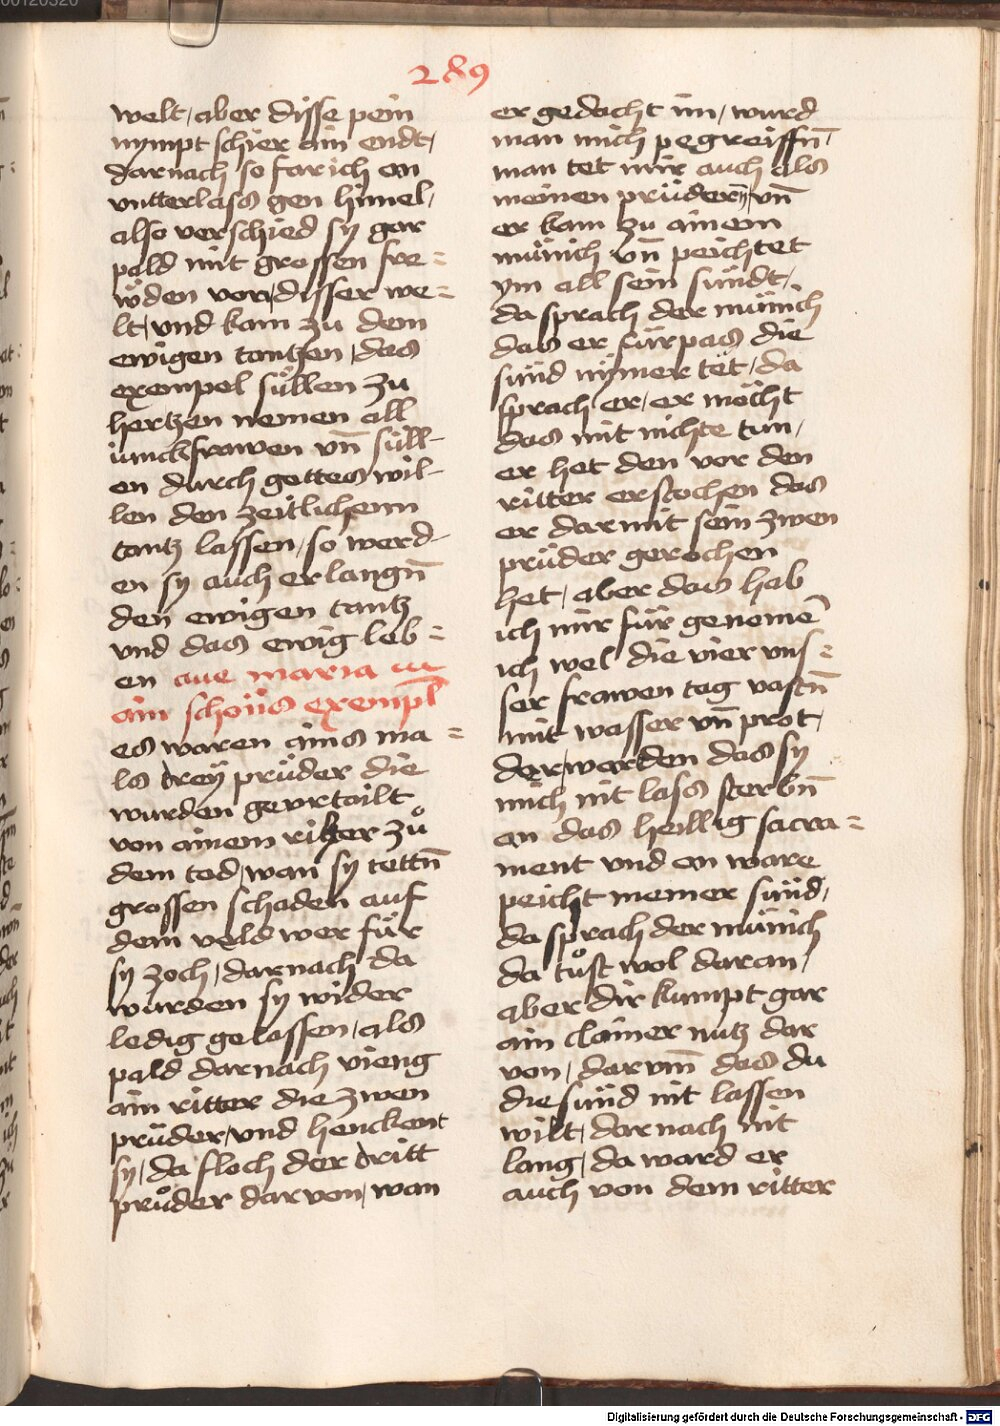 289
welt / aber disse pein
nympt schier ain endt /
darnach so far ich on
vntterlass gen himel /
also verschied sy gar
pald mit grossen fre=
wͦden von / disser we=
lt / vnd kam zu dem
ewigen tantzen / das
exempel süllen zu
hertzen nemen all
iunckfrawen vn̄ süll-
en durch gottes wil-
len den zeitlichenn
tantz lassen / so werd-
en sy auch erlangn̄
den ewigen tantz
vnd das ewig leb=
en aue maria
ain schöns exempl
es waren ains ma=
ls dreÿ prüder die
wurden gevrtailt
von ainem ritter zuͦ
dem tod / wan sy tettn̄
grossen schaden auf
dem veld wer für
sy zoch / darnach da
wurden sy wider
ledig gelassen / als
pald darnach vieng
ain ritter die zwen
prüder / vnd henckent
sy / da floch der dritt
pruͦder darvon / wan
er gedacht im / wurd
man mich pegreiffn̄
man tet mir auch als
meinen prüdern̄ / vn̄
er kam zu ainem
münich vn̄ peichtet
ym all sein sündt /
da sprach der münich
das er fürpas die
sünd nymer tët / da
sprach er / er möcht
das mit nichte tun /
er het den vor den
ritter erstochen das
er darmit sein zwen
prüder gerochen
het / aber das hab
ich mir für genomē
ich wel die vier vns=
ser frawen tag vastn̄
mit wasser vn̄ prot /
der worden das sy
mich nit lass sterbn̄
an das heillig sacra=
ment vnd on ware
peicht meiner sünd /
da sprach der münich
da tuͦst wol daran /
aber dir kumpt gar
ain clainer nutz dar
von / darvm̄ das du
die sünd nit lassen
wilt / darnach nit
lang / da ward er
auch von dem ritter
Digitalisierung gefördert durch die Deutsche Forschungsgemeinschaft - DFG